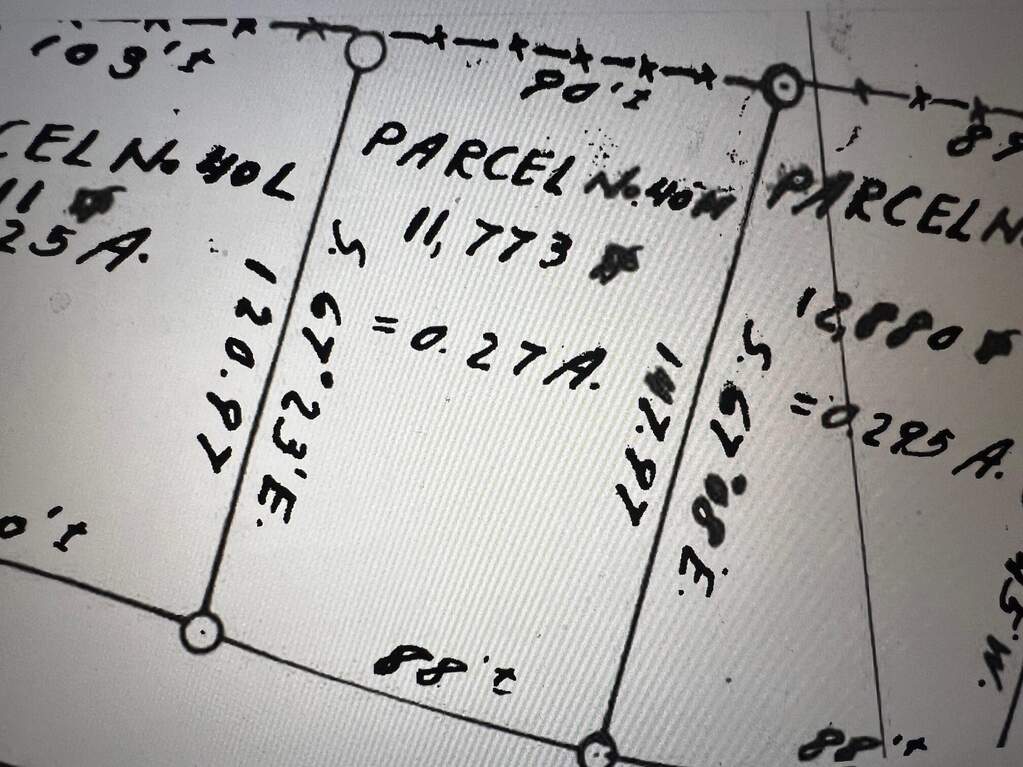 103'±
CEL No. 40L
11
25 A.
120.97
0'±
90'±
PARCEL No. 40M
11,773
= 0.27 A.
S. 67° 23' E.
88'±
89
PARCEL N
12,880
= 0.295 A.
S. 67° 08' E.
88'±
W.